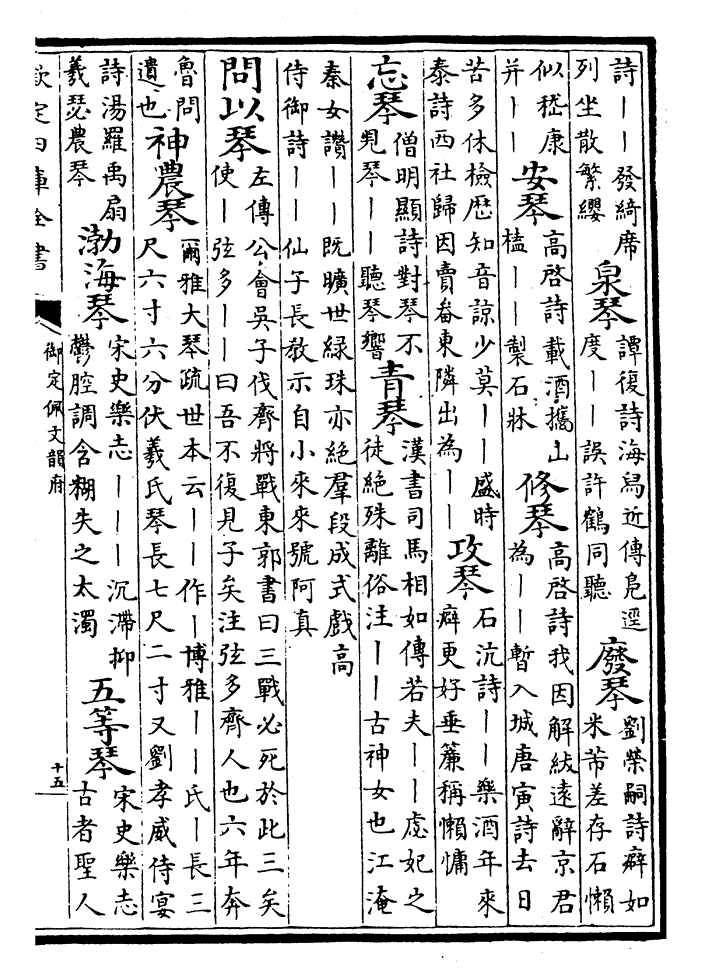 詩丨丨發綺席列坐散繁纓泉琴譚復詩海舄近傳鳧逕度丨丨誤許鶴同聽廢琴劉榮嗣詩癖如米芾差存石懶
似嵇康并丨丨安琴高啓詩載酒攜山榼丨丨製石牀修琴高啓詩我因解紱遠辭京君為丨丨暫入城唐寅詩去日
苦多休檢歴知音諒少莫丨丨盛時泰詩西社歸因賣畚東隣出為丨丨攻琴石沆詩丨丨樂酒年來癖更好垂簾稱懶慵
忘琴僧明顯詩對琴不見琴丨丨聽琴響青琴漢書司馬相如傳若夫丨丨虙妃之徒絶殊離俗注丨丨古神女也江淹
秦女讚丨丨既曠世緑珠亦絶羣段成式戯高侍御詩丨丨仙子長教示自小來來號阿真
問以琴左傳公會吳子伐齊將戰東郭書曰三戰必死於此三矣使丨弦多丨丨曰吾不復見子矣注弦多齊人也六年奔
魯問遺也神農琴爾雅大琴疏世本云丨丨作丨博雅丨丨氏丨長三尺六寸六分伏羲氏琴長七尺二寸又劉孝威侍宴
詩湯羅禹扇羲瑟農琴渤海琴宋史樂志丨丨丨沉滯抑鬱腔調含糊失之太濁五等琴宋史樂志古者聖人
欽定四庫全書
御定佩文韻府
十五